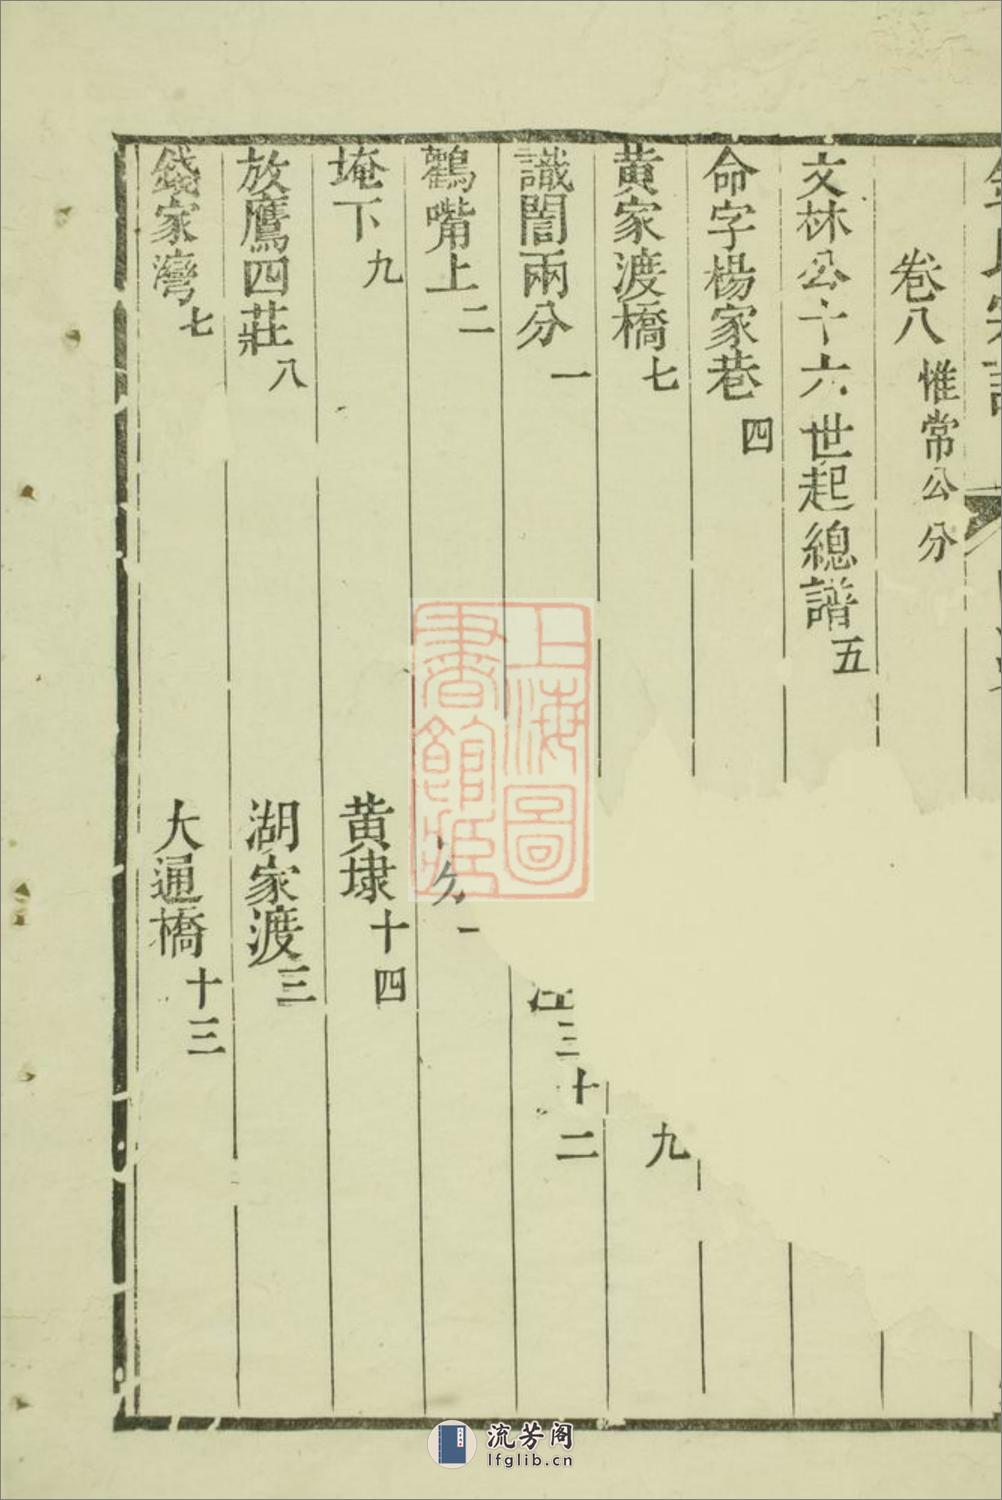 卷八 惟常公分
文林公十六世起總譜 五
命字楊家巷 四
黃家渡橋 七 九
識闇兩分 一 三 十二
鸛嘴上 二 一
埯下 九 黃埭 十四
放鷹四莊 八 湖家渡 三
錢家灣 七 大通橋 十三
上海圖書館藏
流芳阁
lfglib.cn